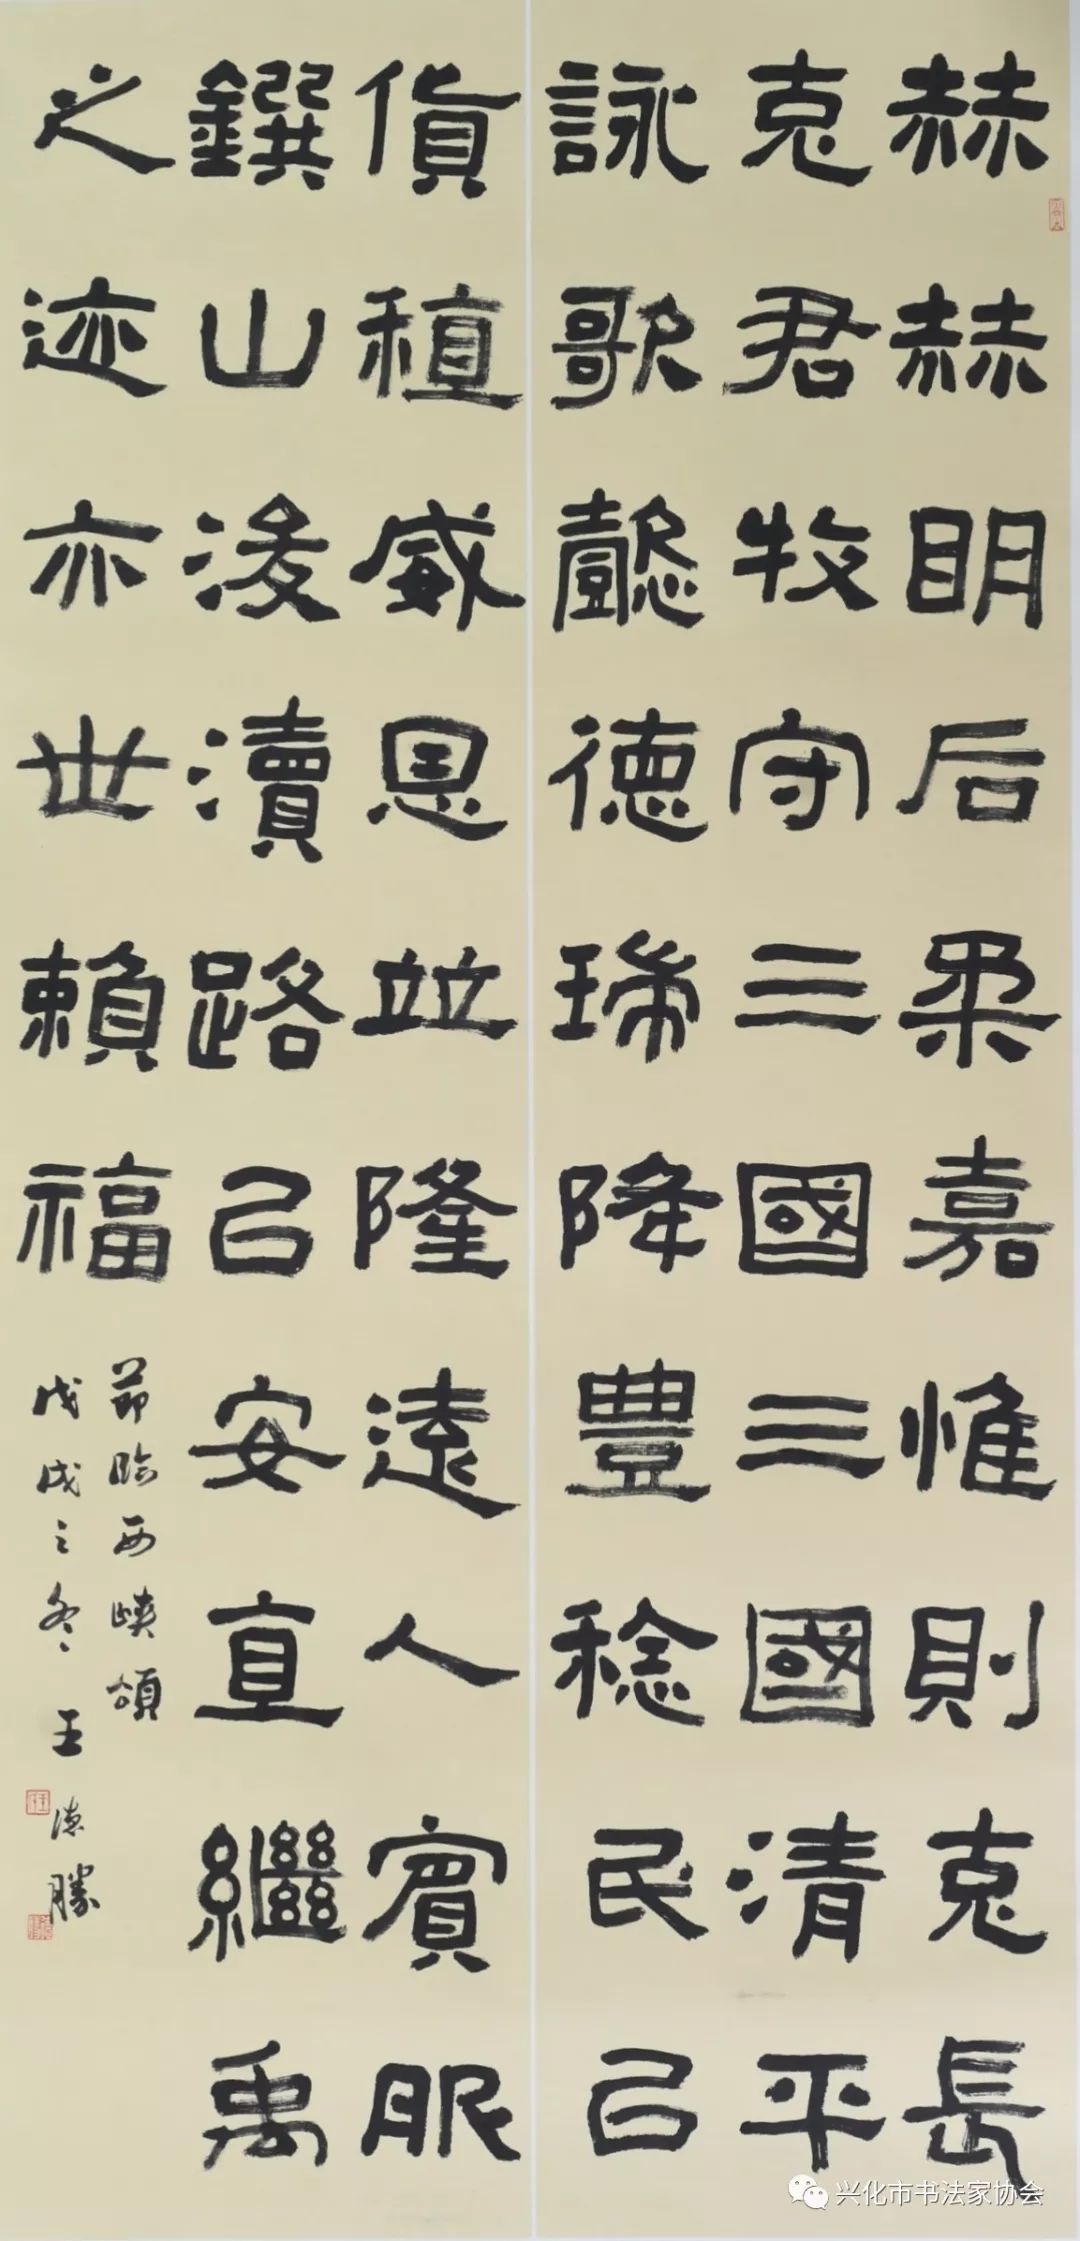 赫赫眀后柔嘉惟則克長
克君牧守三國三國清平
詠歌懿德瑞降豐稔民㠯
貨稙威恩竝隆遠人賓服
鐉山浚瀆路㠯安直繼禹
之迹亦世賴福
節臨西峽頌
戊戌之冬王德勝
兴化市书法家协会